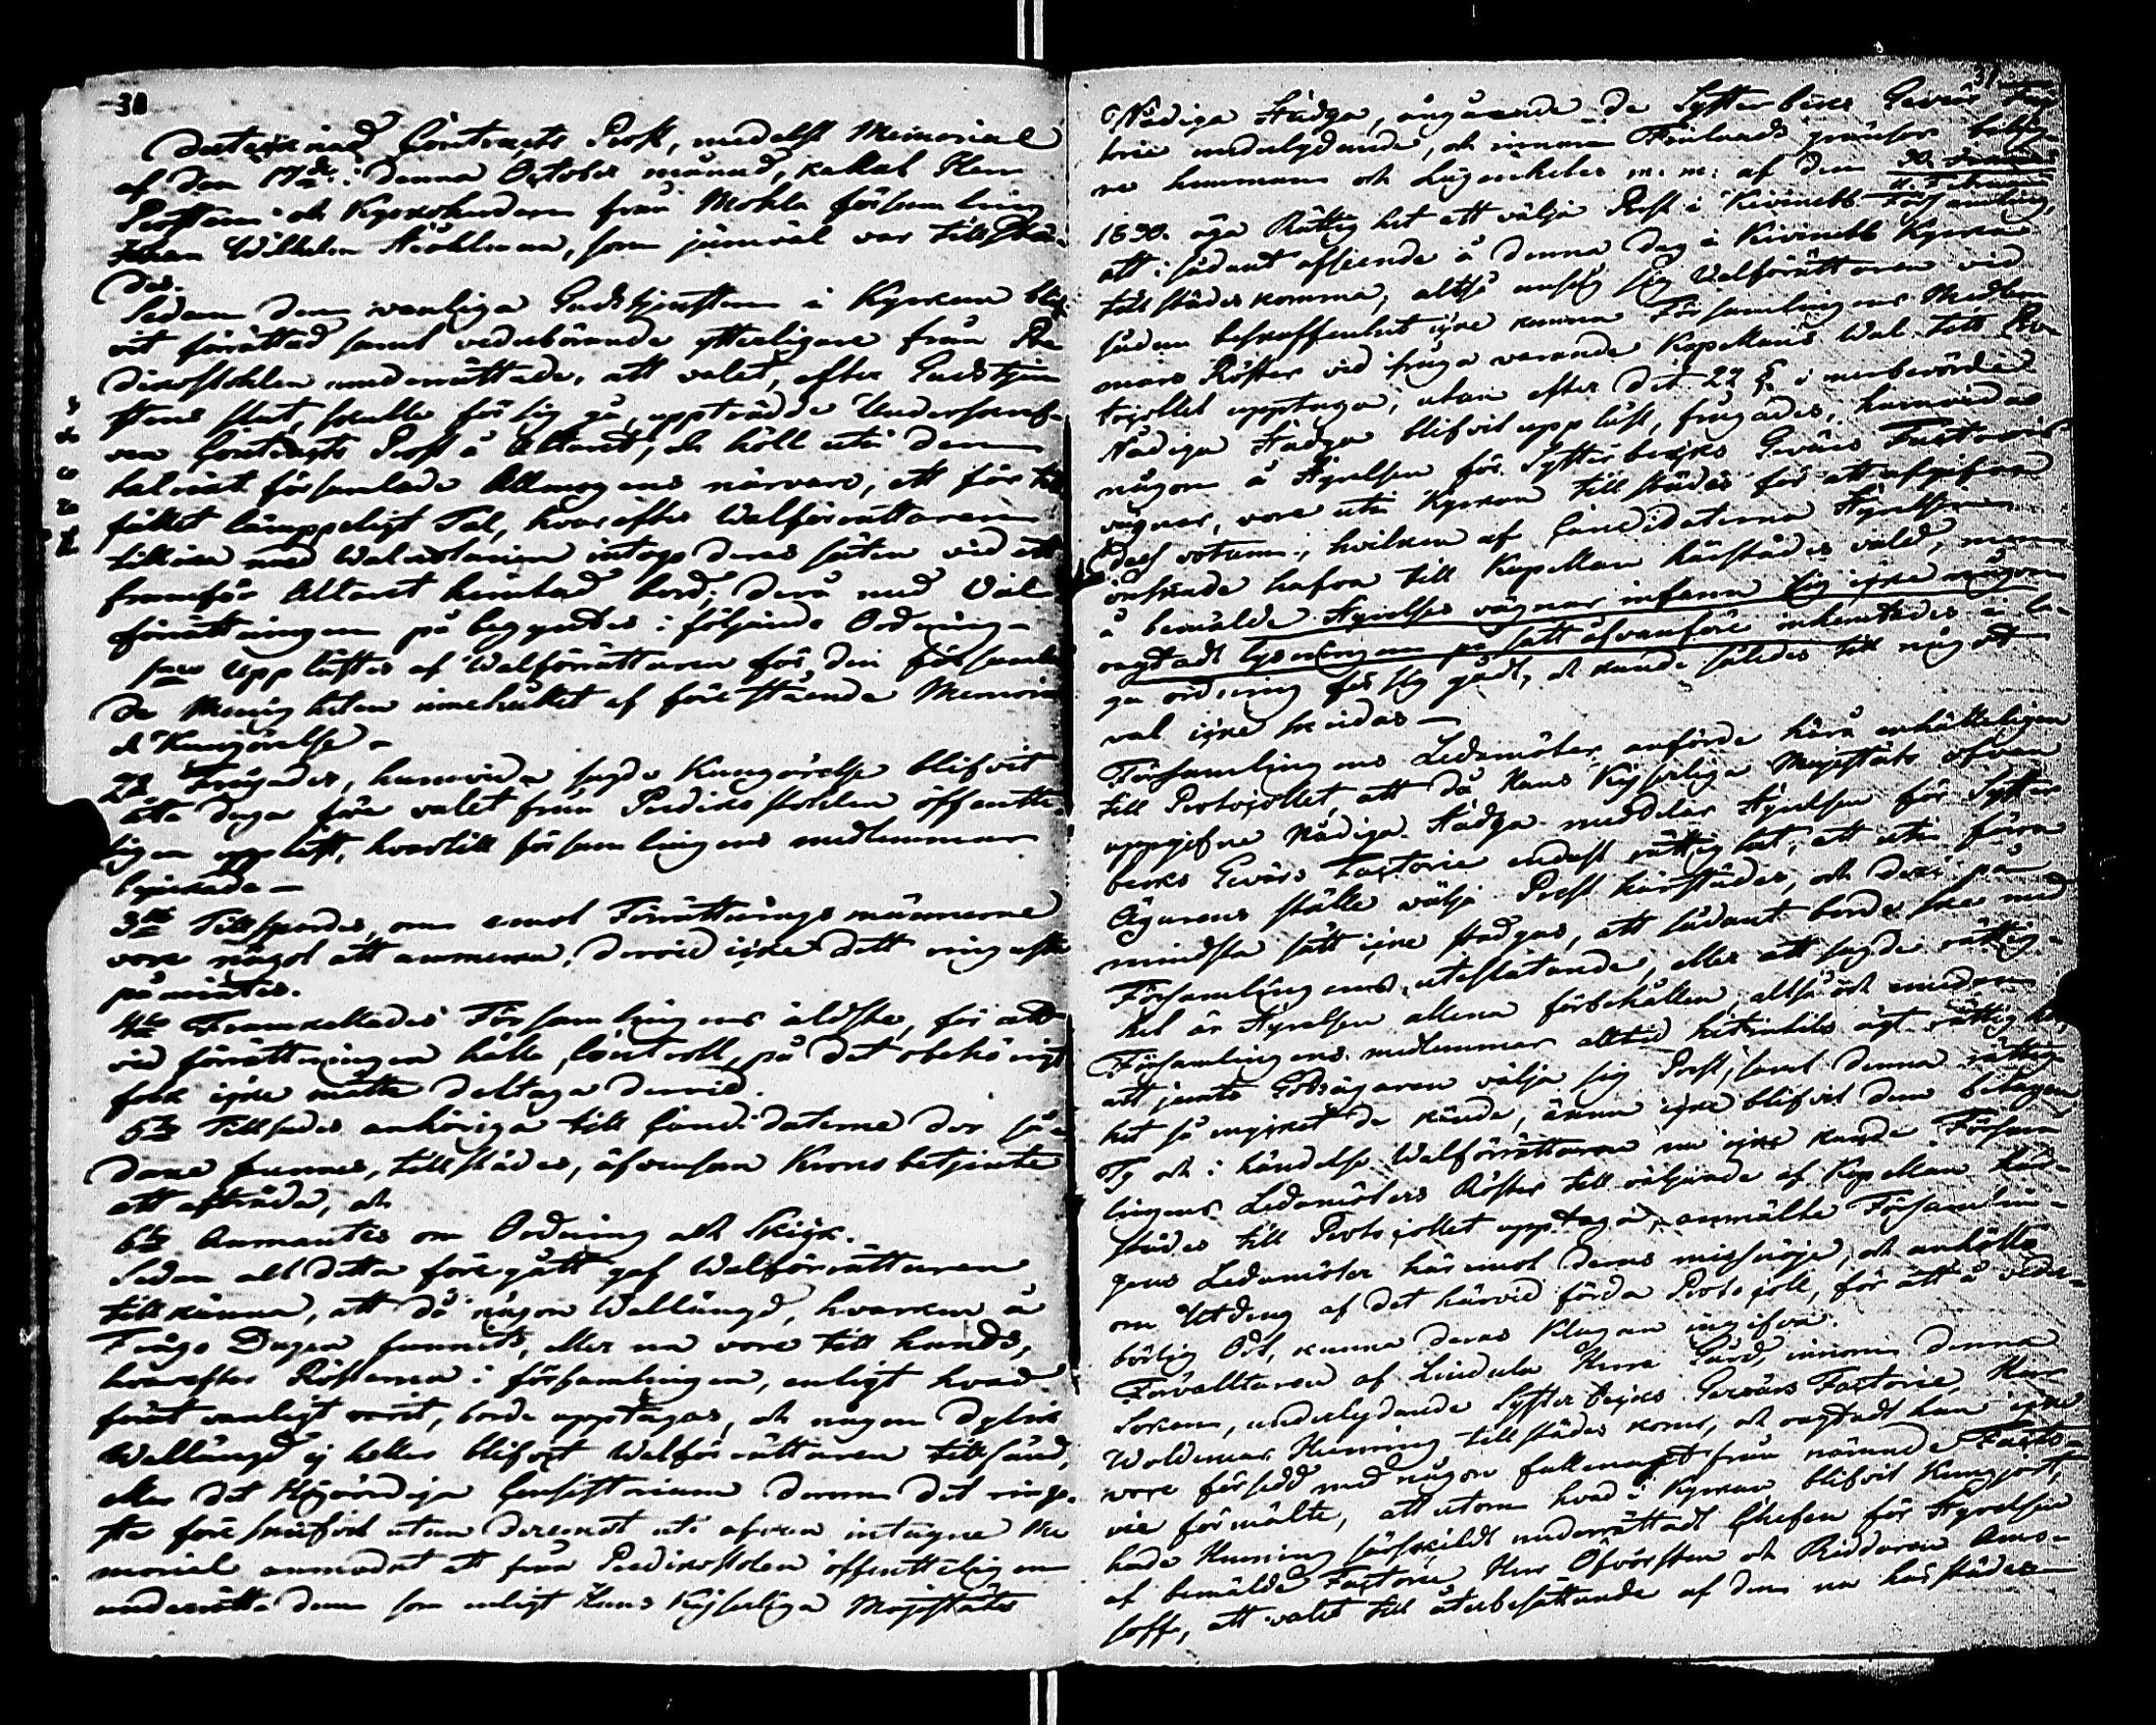 30
undertecknad Contracts Prost, medelst Memorial
af den 17de i denna October månad, kallat Herr
Prosten och Kyrkoherden från Mohla församling
Johan Wilhelm, som jämväl var tillstä-
des.
Sedan den vanliga Gudstjensten i Kyrkan blif-
vit förrättad samt vederbörande ytterligare från Pre
dikostohlen underrättade, att valet, efter Gudstjen
stens slut, skulle för sig gå, uppträdde Underskrif-
ven Contracts Prost å Altaret, och höll uti den
talrikt församlade Allmogens närvaro, ett för till
fället lämppeligt Tal, hvarefter Walförrättaren
tillika med Walnotarien intogo deras säten vid ett
framför Altaret bord; derå med Val
förrättningen på begyntes i följande Ordning-
1mo Upplästes af Walförrättaren för den församla
de Menigheten innehållet af förestående Memorial
och Kungörelse-
2do Frågades, huruvida sagde Kungörelse blifvit
åtta dagar före valet från Predikostohlen offentte-
ligen uppläst, hvartill församlingens medlemmar
bejakade-
3tio Tillspordes, om emot Förrättningsmännerne
vore något att anmärka, dervid icke dett ringaste
påmintes.
4to Framkallades Församlingens äldste, för att
vid förrättningen hålla Controll, på det obehörigt
folk icke måtte deltaga dervid.
5to Tillsades anhöriga till Candidaterne der så-
dane funnes, tillstädes, äfvensom Krono betjente
att afträda, och
6to Anmantes om Ordning och Skick.
Sedan allt detta föregått gaf Walförrättaren
tillkänna, att då någon Wallängd, hvarken å
Frågo Dagen funnits, eller nu vore till hands,
hvarefter Rösterna i församlingen, enligt hvad
förut vanligt varit, borde upptagas, och någon dylik
Wallängd ej heller blifvit Walförrättaren tillsänd,
eller det Högvördiga Consistorium derom det ringa-
ste föreskrifvit utan deremot uti ofvan intagne Me
morial anmodat att från Predikostolen offentteligen
underrätta dem som enligt Hans Kejserliga Majestäts
31
Nådiga Stadga, angående de Systerbäcks Gevärs Fac
torie underlydande, och innom Finlands gränsor belägn-
ne hemman och Lägenheter m. m. af den
1830. äga Rättighet att välja Prest i Kivinebb Församling,
att i sådant afseende å denna dag i Kivinebb Kyrka
tillstädeskomma; alltså ansåg sig Valförrättaren vid
sådan beskaffenhet icke kunna Församlingens Medlem
mars Röster vid ifråga varande Kapellans Wal till Pro
tocollet upptaga, utan efter det 22 §. i merberörde
Nådiga Stadga blifvit uppläst, frågades, huruvida
någon å Styrelsen för Systerbecks Gevärs Factories
vägnar, vore uti Kyrkan tillstädes för att afgifva
dess votum, hvilken af Candidaterna Styrelsen
önskade hafva till Kapellan härstädes vald, men
å bemälde Styrelses vägnar infann sig icke någon
oagtadt lysningen på sätt ofvanföre inhemtades i la-
ga ordning för sig gådt, och kunde således till något
val icke skridas-
Församlingens Ledamöter anförde härå enhälteligen
till Protocollet, att då Hans Kejserliga Majestäts ofvan
uppgifne Nådiga Stadga meddelar Styrelsen för Syster
becks Gevärs Factorie endast rättighet, att uti förra
Ägarens ställe välja Prest härstädes, och deri på
mindsta sätt icke stadgas, att sådant borde ske med
Församlingens uteslutande, eller att sagde rättig-
het är Styrelsen allena förbehållen, alltså och emedan
Församlingens medlemmar alltid hittintils ägt rättighet,
att jemte Godsägaren välja sig Prest, samt denna rättig-
het så mycket de kände, ännu icke blifvit dem betagen
Ty och i händelse Walförrättaren nu icke kunde Försam
lingens Ledamöters Röster till väljande af Kapellan här-
städes till Protocollet upptaga, anmälte Församlin-
gens Ledamöter häremot deras missnöje, och anhöllo
om Utdrag af det härvid förda Protocoll, för att å veder-
börlig Ort, kunna deras klagan ingifva.
Förvalltaren af Lindula Herre Gård, innom denna
Soken, underlydande Systerbecks Gevärs Factorie, Herr
Woldemar Henning tillstädes kom, och oagtadt han icke
vore försedd med någon fullmagt från nämnde Facto-
rie förmälte, att utom hvad i Kyrkan blifvit Kungjort,
hade Henning särskildt underrättadt Chefen för Styrelsen
af bemälde Factorie Herr Öfversten och Riddaren Amo-
soff, att valet till återbesättande af den nu härstädes